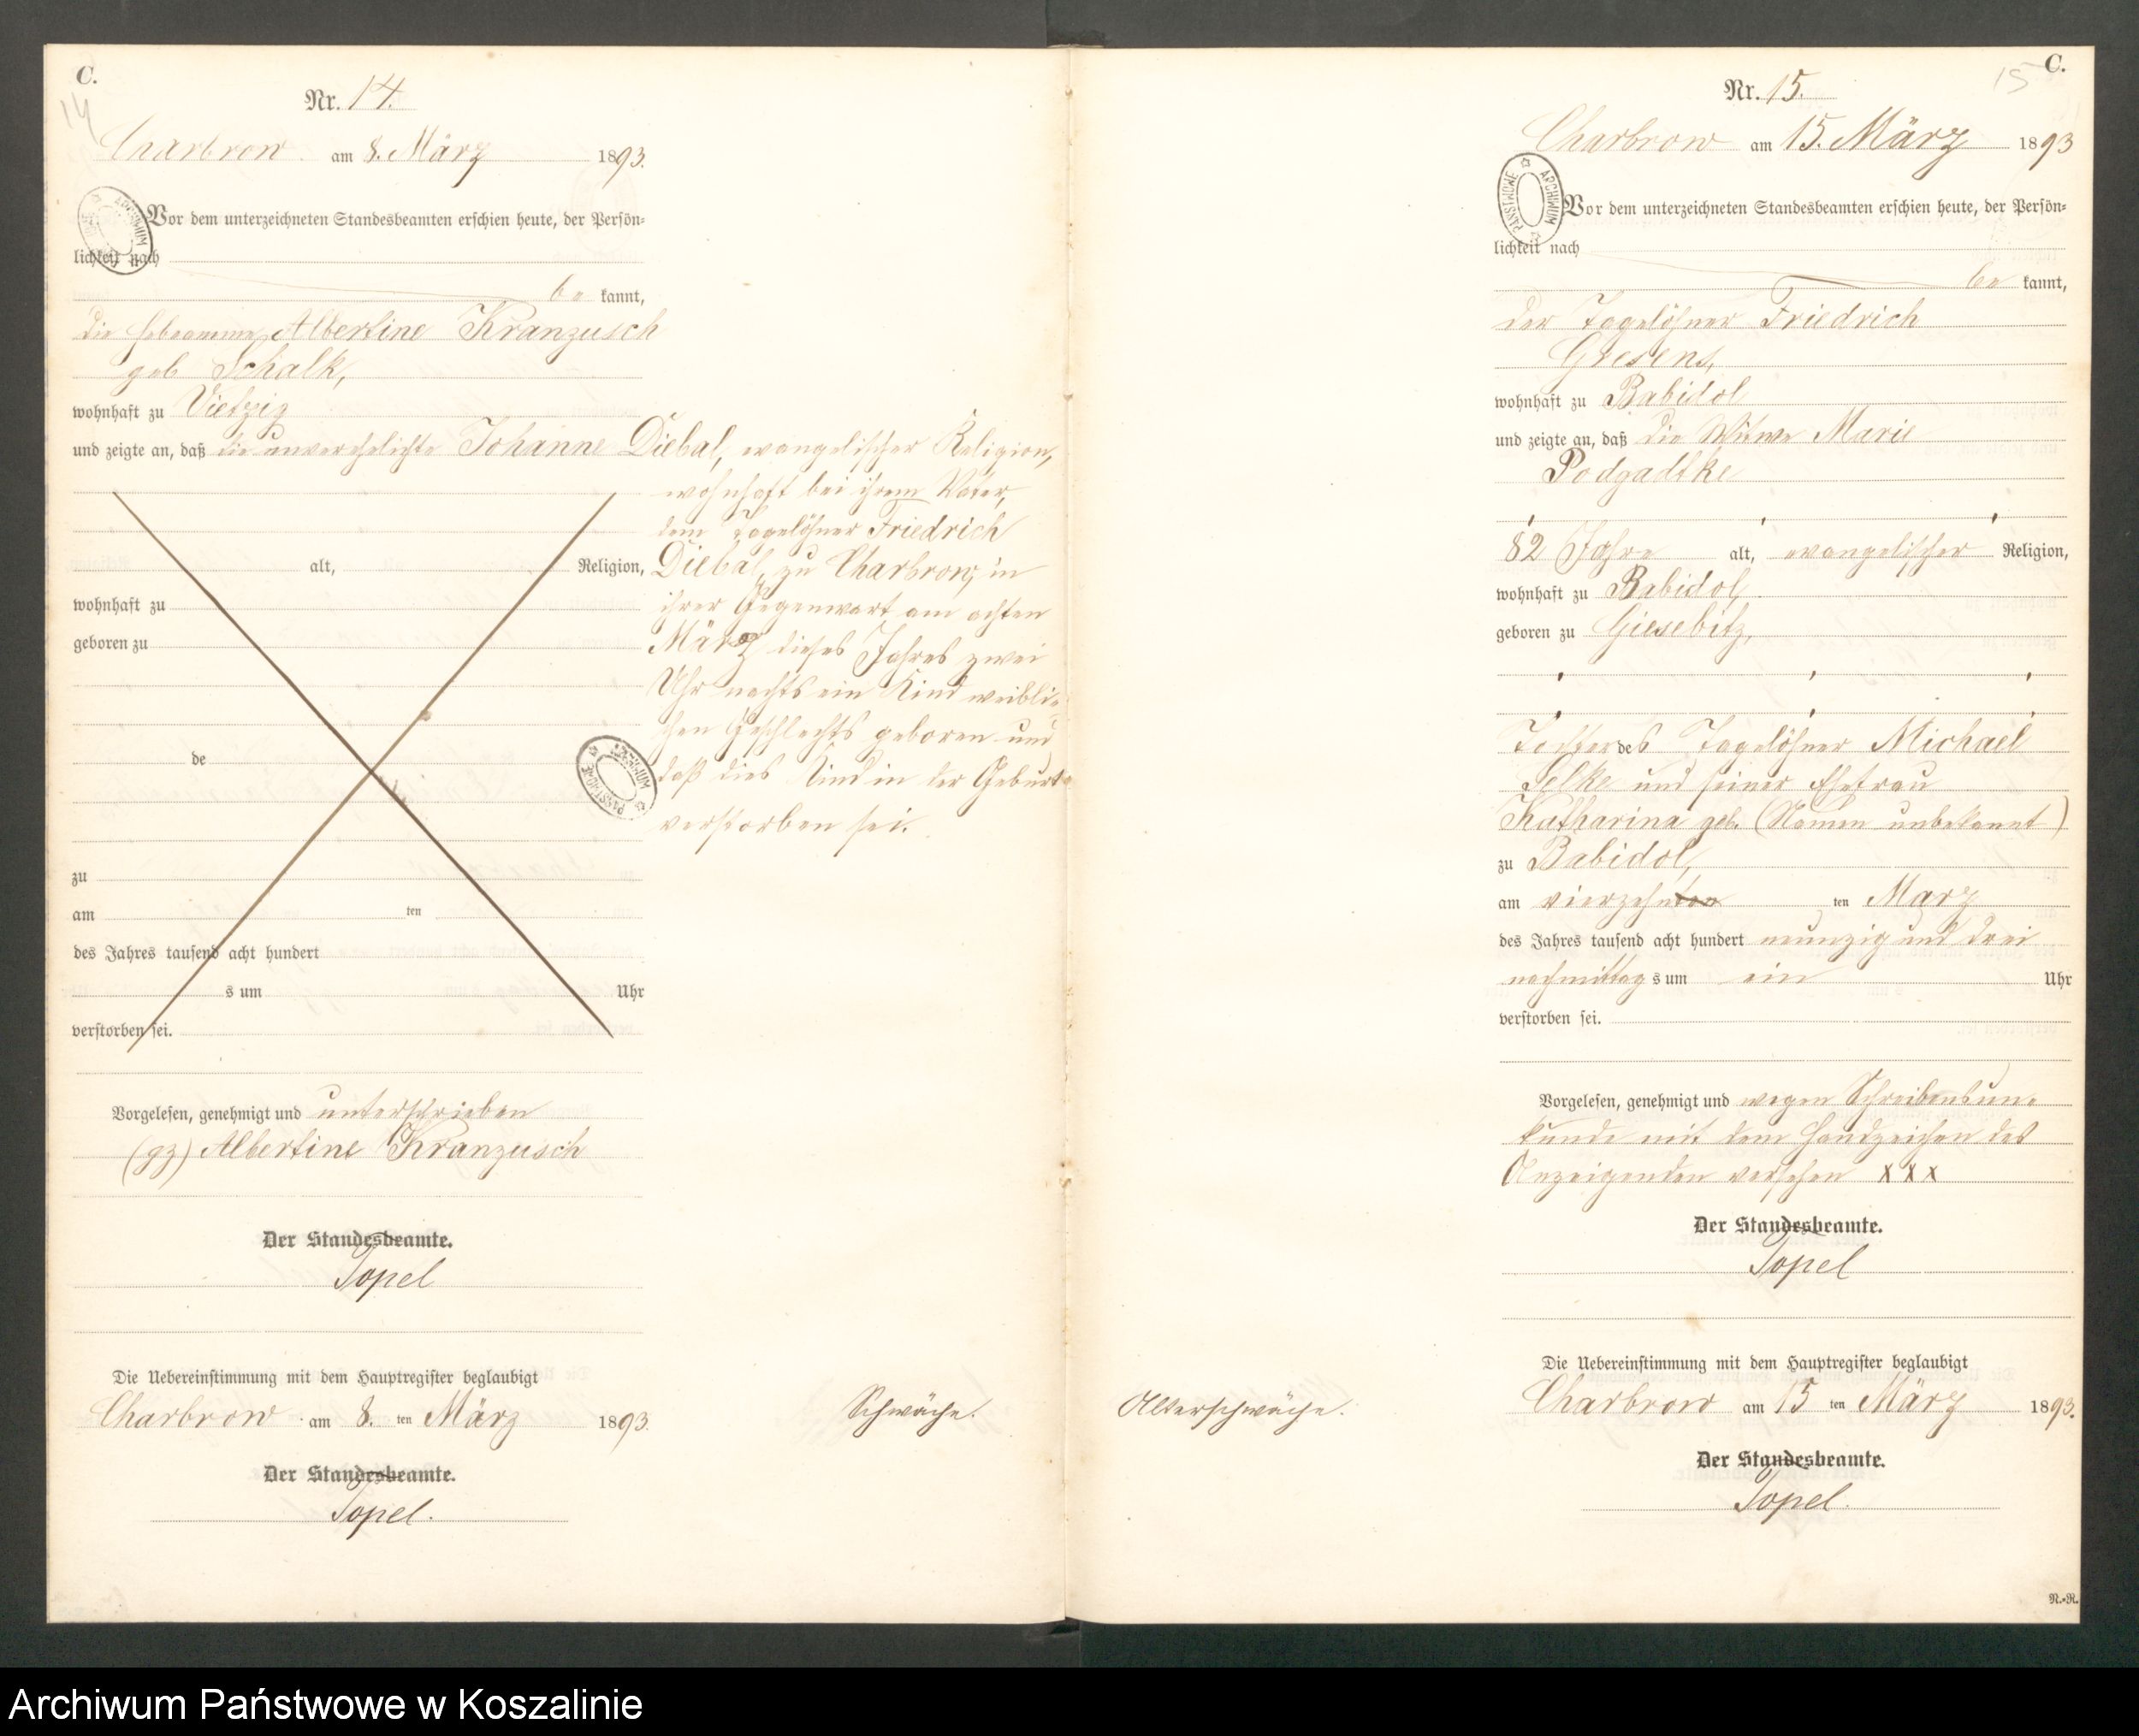 C.
14
Nr. 14.
Charbrow am 8. März 1893.
Vor dem unterzeichneten Standesbeamten erschien heute, der Persön-
lichkeit nach
be kannt,
die Hebeamme Albertine Kranzusch
geb Schalk,
wohnhaft zu Vietzig
und zeigte an, daß die unverehelichte Johanne Diebal, evangelischer Religion,
wohnhaft bei ihrem Vater,
dem Tagelöhner Friedrich
alt, Religion, Diebal, zu Charbrow, in
wohnhaft zu ihrer Gegenwart am achten
geboren zu März dieses Jahres zwei
Uhr nachts ein Kind weibli-
chen Geschlechts geboren und
de daß dies Kind in der Geburt
verstorben sei.
zu
am ten
des Jahres tausend acht hundert
s um Uhr
verstorben sei.
Vorgelesen, genehmigt und unterschrieben
(gz) Albertine Kranzusch
Der Standesbeamte.
Topel
Die Uebereinstimmung mit dem Hauptregister beglaubigt
Charbrow am 8. ten März 1893.
Der Standesbeamte.
Topel.
Schwäche.
ARCHIWUM PAŃSTWOWE
C.
15
Nr. 15.
Charbrow am 15. März 1893
ARCHIWUM PAŃSTWOWE
Vor dem unterzeichneten Standesbeamten erschien heute, der Persön-
lichkeit nach
be kannt,
der Tagelöhner Friedrich
Giesens,
wohnhaft zu Babidol
und zeigte an, daß die Witwe Marie
Podgadtke
82 Jahre alt, evangelischer Religion,
wohnhaft zu Babidol,
geboren zu Giesebitz,
Tochter des Tagelöhner Michael
Selke und seiner Ehefrau
Katharina geb. (Namen unbekannt)
zu Babidol,
am vierzehnten ten Marz
des Jahres tausend acht hundert neunzig und drei
nachmittag s um ein Uhr
verstorben sei.
Vorgelesen, genehmigt und wegen Schreibensun-
kunde mit dem Handzeichen des
Anzeigenden versehen XXX
Der Standesbeamte.
Topel
Die Uebereinstimmung mit dem Hauptregister beglaubigt
Charbrow am 15 ten März 1893.
Der Standesbeamte.
Topel.
Altersschwäche.
N.-R.
Archiwum Państwowe w Koszalinie